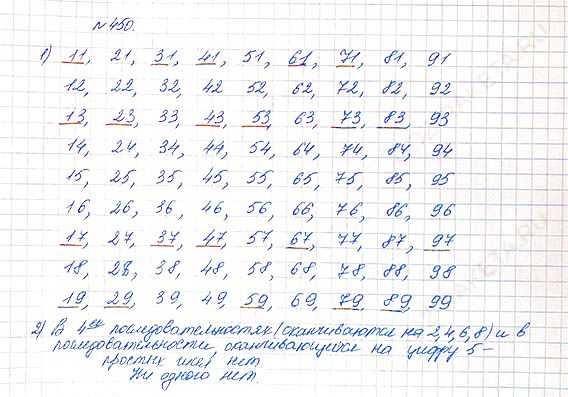 №450.
1) 11, 21, 31, 41, 51, 61, 71, 81, 91
12, 22, 32, 42, 52, 62, 72, 82, 92
13, 23, 33, 43, 53, 63, 73, 83, 93
14, 24, 34, 44, 54, 64, 74, 84, 94
15, 25, 35, 45, 55, 65, 75, 85, 95
16, 26, 36, 46, 56, 66, 76, 86, 96
17, 27, 37, 47, 57, 67, 77, 87, 97
18, 28, 38, 48, 58, 68, 78, 88, 98
19, 29, 39, 49, 59, 69, 79, 89, 99
2) В 4ех последовательностях (оканчиваются на 2,4,6,8) и в
последовательности оканчивающихся на цифру 5 –
простых нет
Ни одного нет.